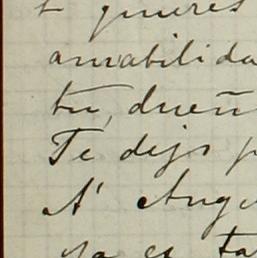 t quieres
amabilida
tu, dueñ
Te dejo p
A' Ange
ya es ta